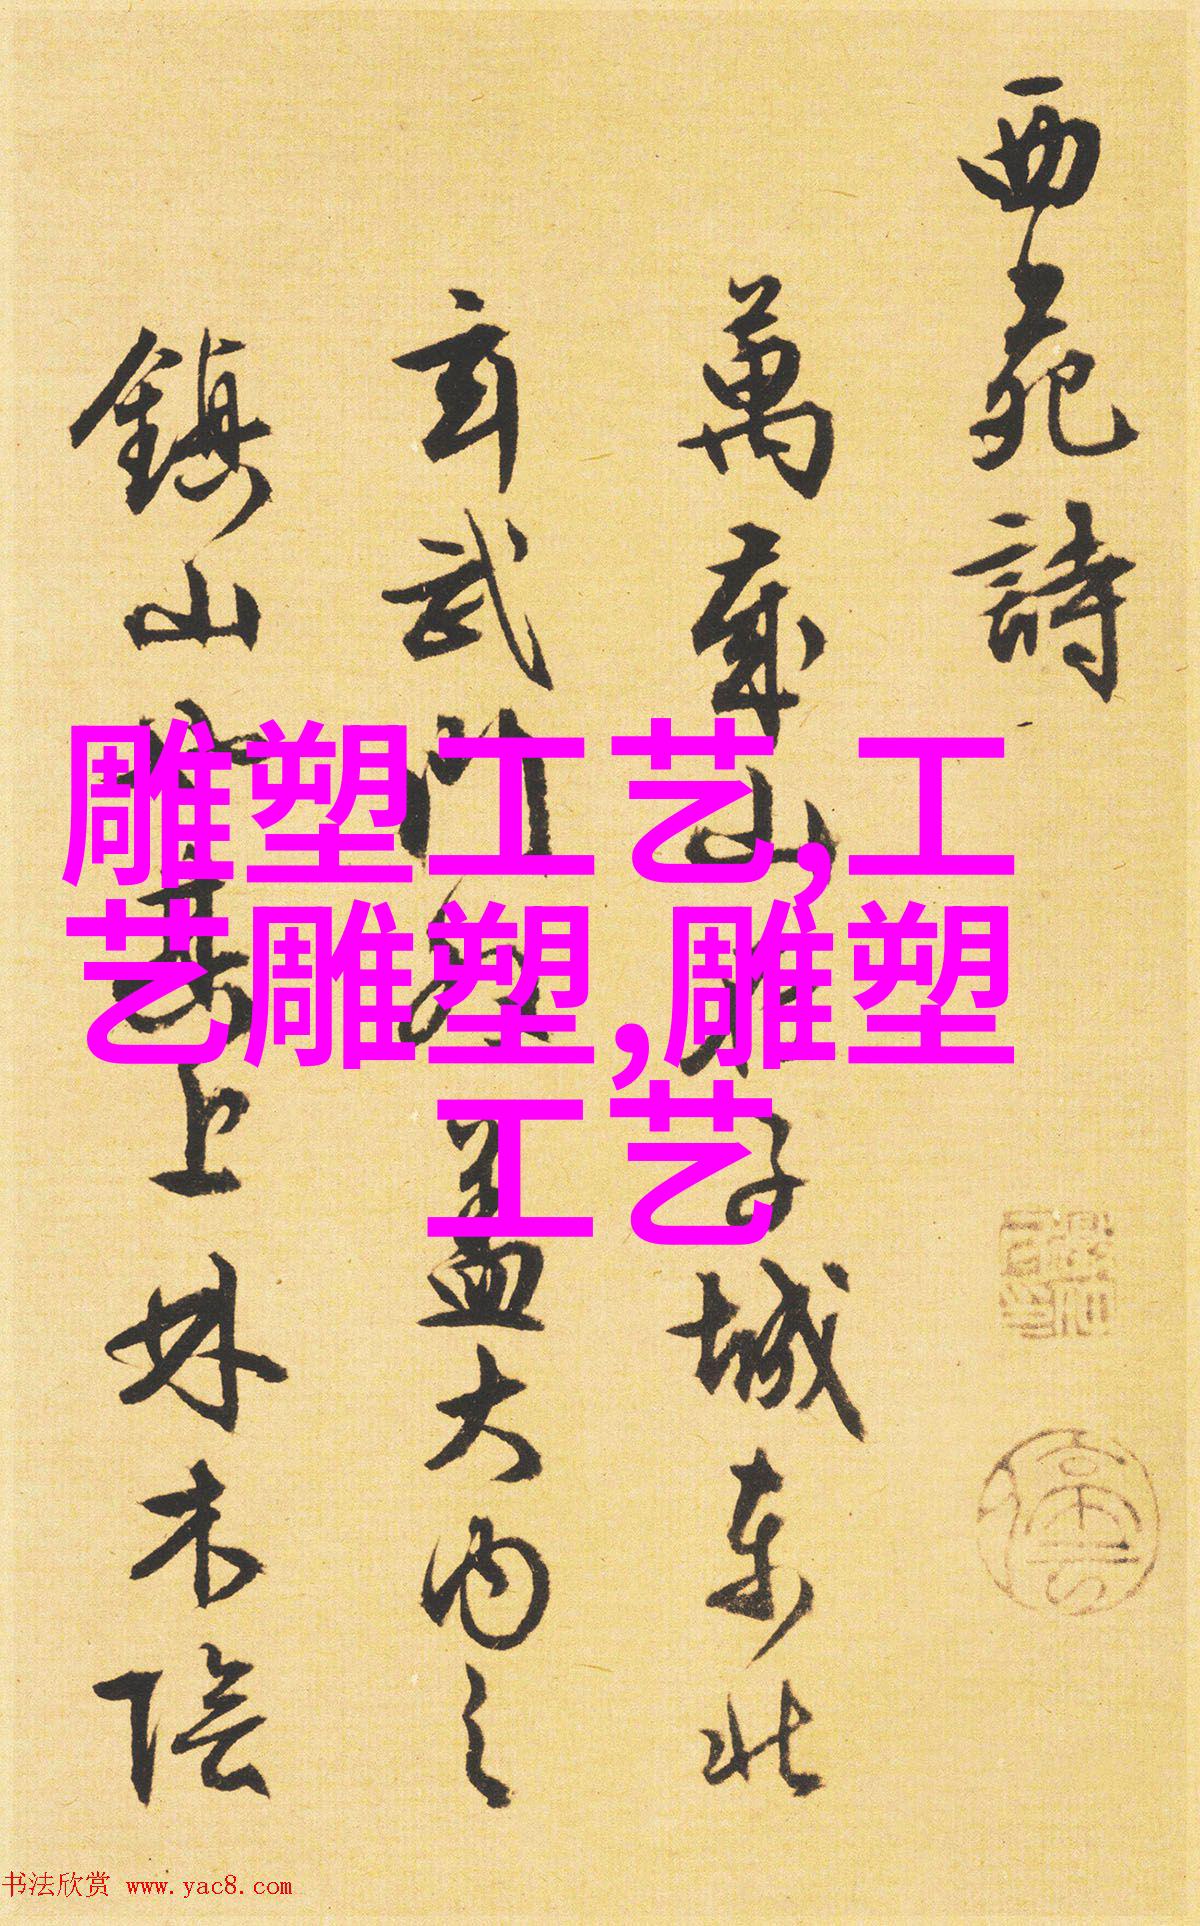 西苑詩
萬歲山在子城東北
玄武門外蓋大內之
鎮山也其上林木陰
雕塑工艺,工
艺雕塑,雕塑
工艺
书法欣赏 www.yac8.com